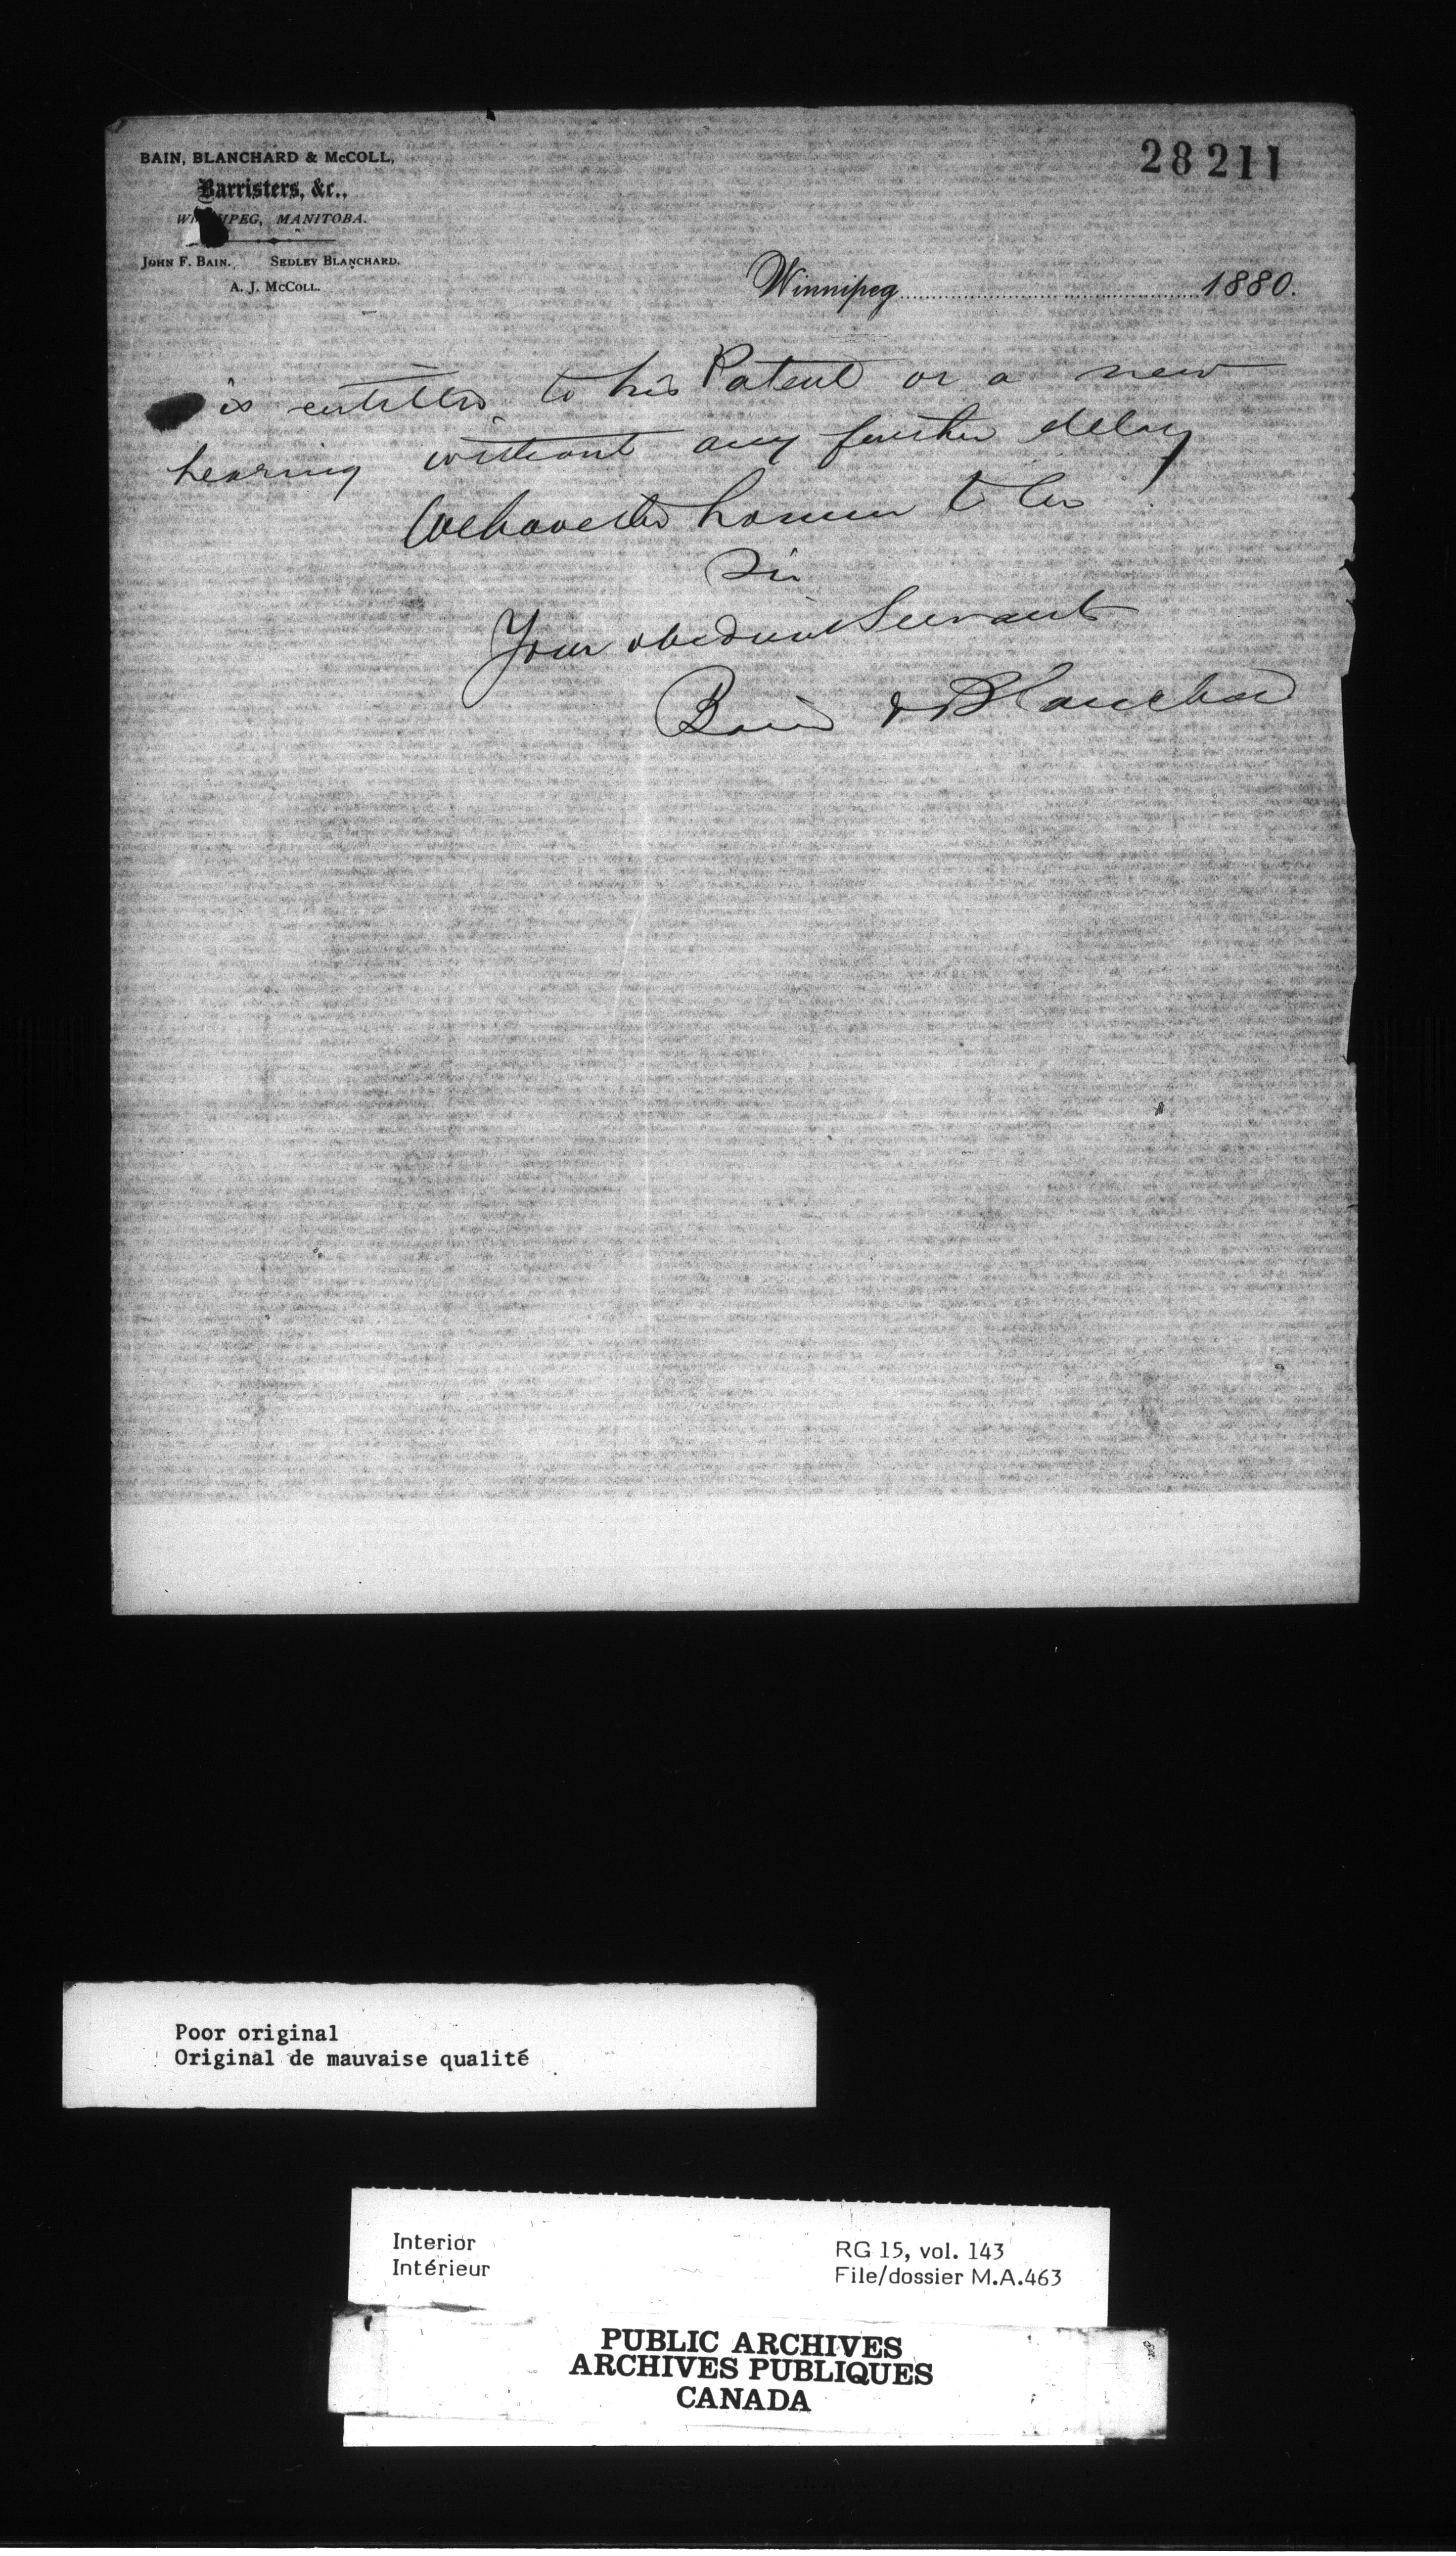 BAIN, BLANCHARD & McCOLL,
28211
Barristers, &c.,
WINNIPEG, MANITOBA.
JOHN F. BAIN. SEDLEY BLANCHARD.
A. J. McCOLL.
Winnipeg 1880.
is entitled to his Patent or a new
hearing without any further delay
We have the honour to be
Sir
Your obedient Servants
Bain & Blanchard
Poor original
Original de mauvaise qualité
Interior
Intérieur
RG 15, vol. 143
File/dossier M.A.463
PUBLIC ARCHIVES
ARCHIVES PUBLIQUES
CANADA